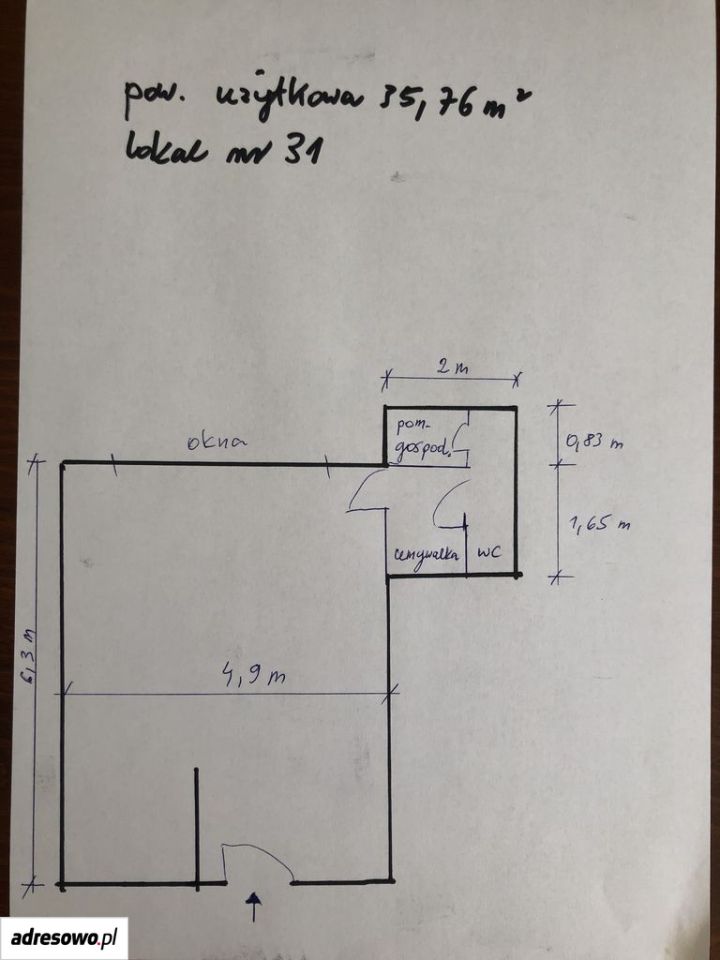 pow. użytkowa 35,76 m²
lokal nr 31
2 m
okna
pom.
gospod.
0,83 m
1,65 m
umywalka
WC
6,3 m
4,9 m
adresowo.pl